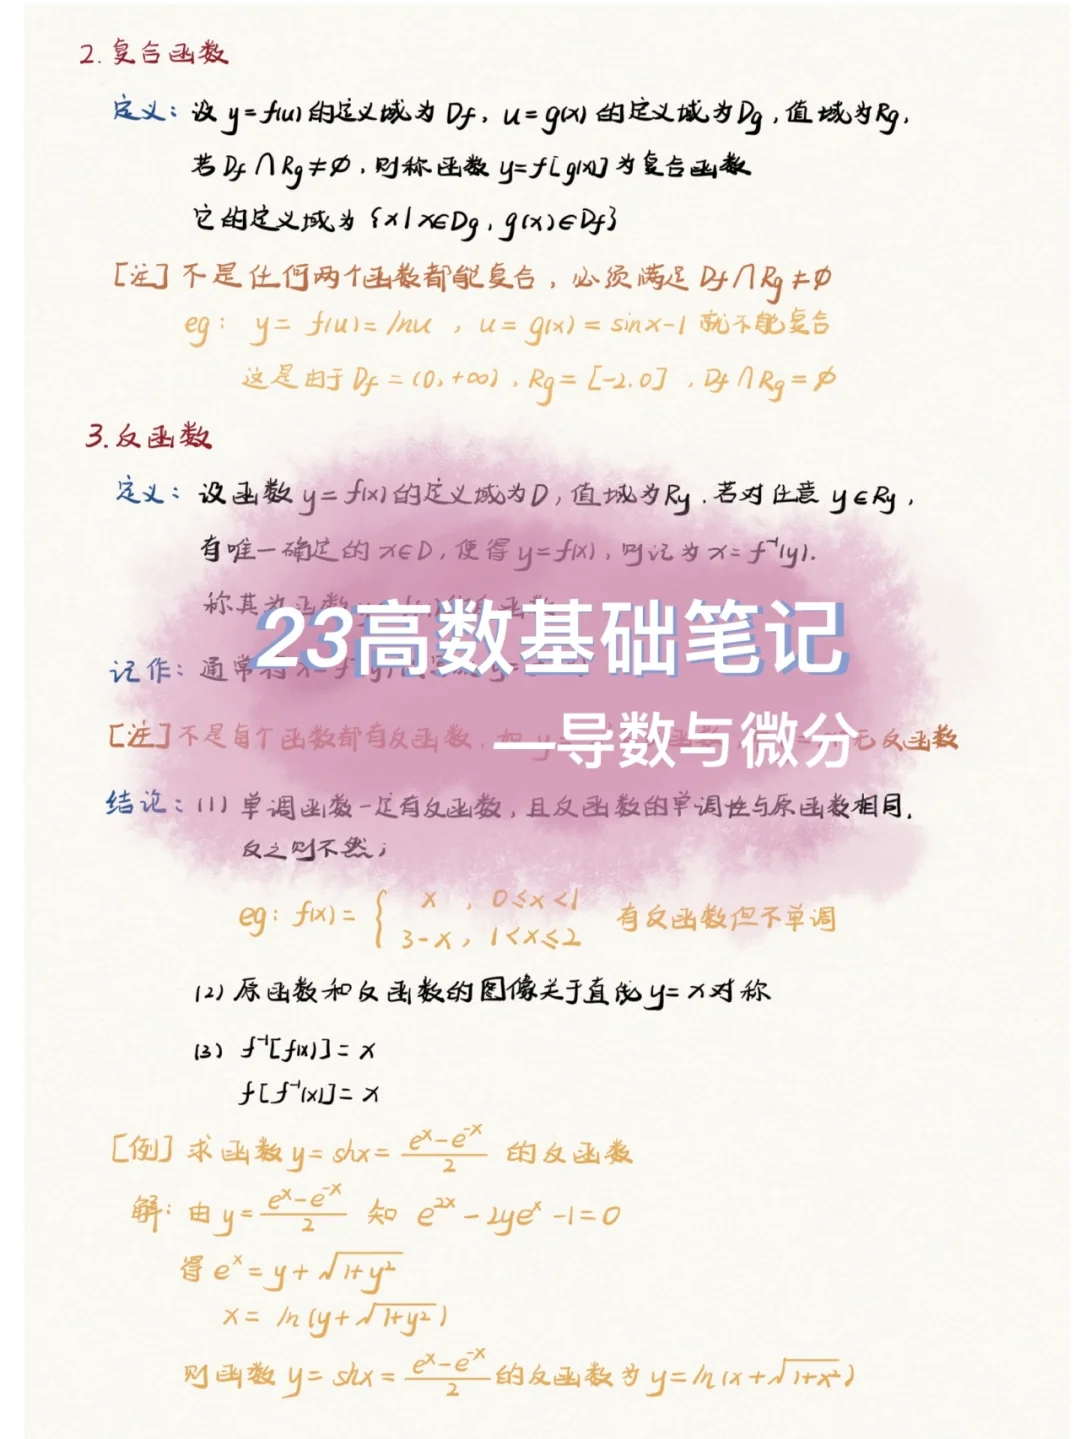 2. 复合函数
定义: 设 y=f(u)的定义域为 Df, u=g(x) 的定义域为Dg, 值域为Rg,
若 Df∩Rg≠∅, 则称函数 y=f[g(x)]为复合函数
它的定义域为 {x|x∈Dg, g(x)∈Df}
[注] 不是任何两个函数都能复合, 必须满足 Df∩Rg≠∅
eg: y= f(u)=lnu , u= g(x) = sinx-1 就不能复合
这是由于 Df =(0,+∞), Rg= [-2,0] , Df∩Rg=∅
3.反函数
定义: 设函数 y= f(x)的定义域为D, 值域为Ry. 若对任意 y∈Ry,
有唯一确定的 x∈D, 使得 y=f(x), 则记为 x= f⁻¹(y).
称其为函数
23高数基础笔记
记作: 通常将
[注]不是每个函数都有反函数, 无反函数
—导数与微分
结论: (1) 单调函数一定有反函数, 且反函数的单调性与原函数相同,
反之则不然;
eg: f(x)= { x , 0≤x<1
3-x, 1<x≤2 有反函数但不单调
(2) 原函数和反函数的图像关于直线 y= x对称
(3) f⁻¹[f(x)]= x
f[f⁻¹(x)]= x
[例] 求函数 y= shx= (eˣ-e⁻ˣ)/2 的反函数
解: 由 y= (eˣ-e⁻ˣ)/2 知 e²ˣ - 2yeˣ -1=0
得 eˣ= y+√(1+y²)
x= ln(y+√(1+y²))
则函数 y= shx= (eˣ-e⁻ˣ)/2 的反函数为 y=ln(x+√(1+x²))